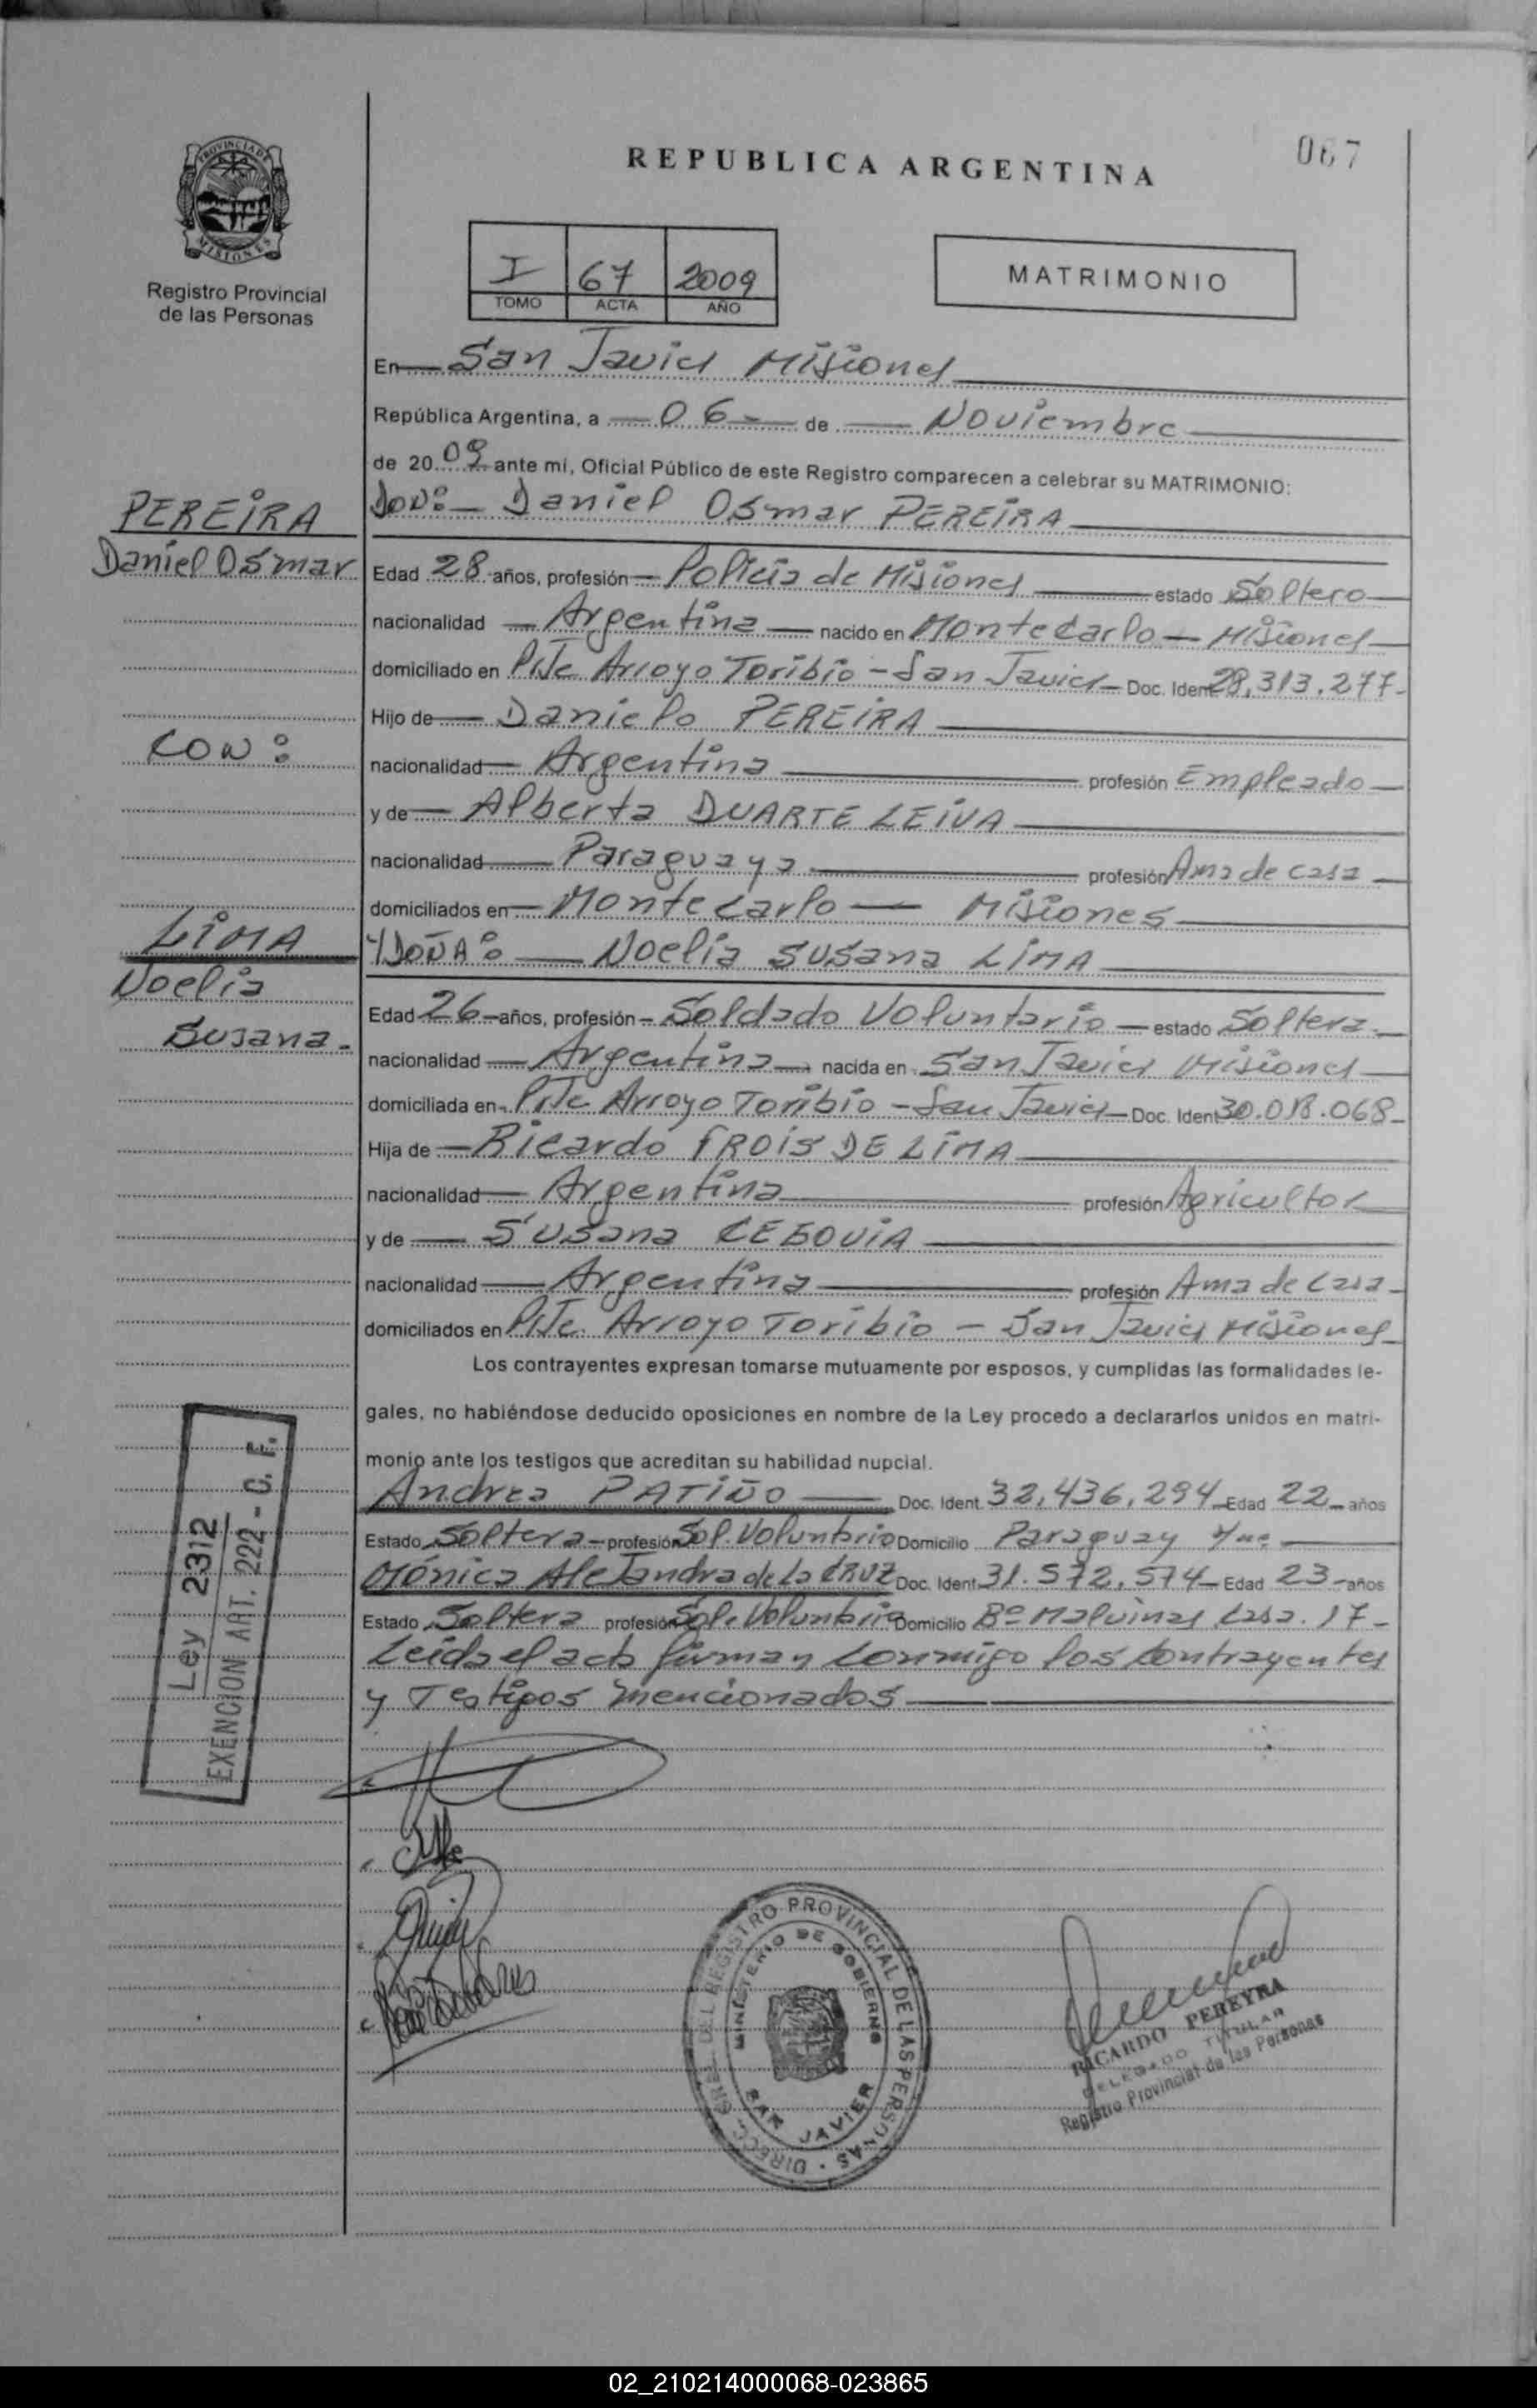 PROVINCIA DE
MISIONES
Registro Provincial
de las Personas
REPUBLICA ARGENTINA
067
I 67 2009
TOMO ACTA AÑO
MATRIMONIO
En San Javier Misiones
República Argentina, a 06 de Noviembre
de 2009 ante mi, Oficial Público de este Registro comparecen a celebrar su MATRIMONIO:
PEREIRA
Daniel Osmar
CON:
LIMA
Noelia
Susana
Don: Daniel Osmar PEREIRA
Edad 28 años, profesión Policía de Misiones estado Soltero
nacionalidad Argentina nacido en Montecarlo - Misiones
domiciliado en Pje Arroyo Toribio - San Javier - Doc. Ident 28.313.277-
Hijo de Danielo PEREIRA
nacionalidad Argentina profesión Empleado
y de Alberta DUARTE LEIVA
nacionalidad Paraguaya profesión Ama de casa
domiciliados en Montecarlo - Misiones
Y DOÑA: Noelia Susana LIMA
Edad 26 años, profesión - Soldado Voluntario - estado Soltera
nacionalidad Argentina nacida en San Javier Misiones
domiciliada en Pje Arroyo Toribio - San Javier - Doc. Ident 30.018.068-
Hija de Ricardo FROIS DE LIMA
nacionalidad Argentina profesión Agricultor
y de Susana CEBOVIA
nacionalidad Argentina profesión Ama de casa
domiciliados en Pje. Arroyo Toribio - San Javier Misiones
Los contrayentes expresan tomarse mutuamente por esposos, y cumplidas las formalidades le-
gales, no habiéndose deducido oposiciones en nombre de la Ley procedo a declararlos unidos en matri-
monio ante los testigos que acreditan su habilidad nupcial.
Andrea PATIÑO Doc. Ident. 32,436,294 Edad 22 años
Estado Soltera profesión Sol. Voluntario Domicilio Paraguay
Mónica Alejandra de la CRUZ Doc. Ident. 31.572.574 - Edad 23 años
Estado Soltera profesión Sol. Voluntario Domicilio Bº Malvinas Casa. 17-
Leída el acta firman conmigo los contrayentes
y Testigos mencionados
Ley 2312
EXENCION ART. 222 - C. F.
DIRECC. GRE. DEL REGISTRO PROVINCIAL DE LAS PERSONAS
MINISTERIO DE GOBIERNO
SAN JAVIER
RICARDO PEREYRA
DELEGADO TITULAR
Registro Provincial de las Personas
02_210214000068-023865